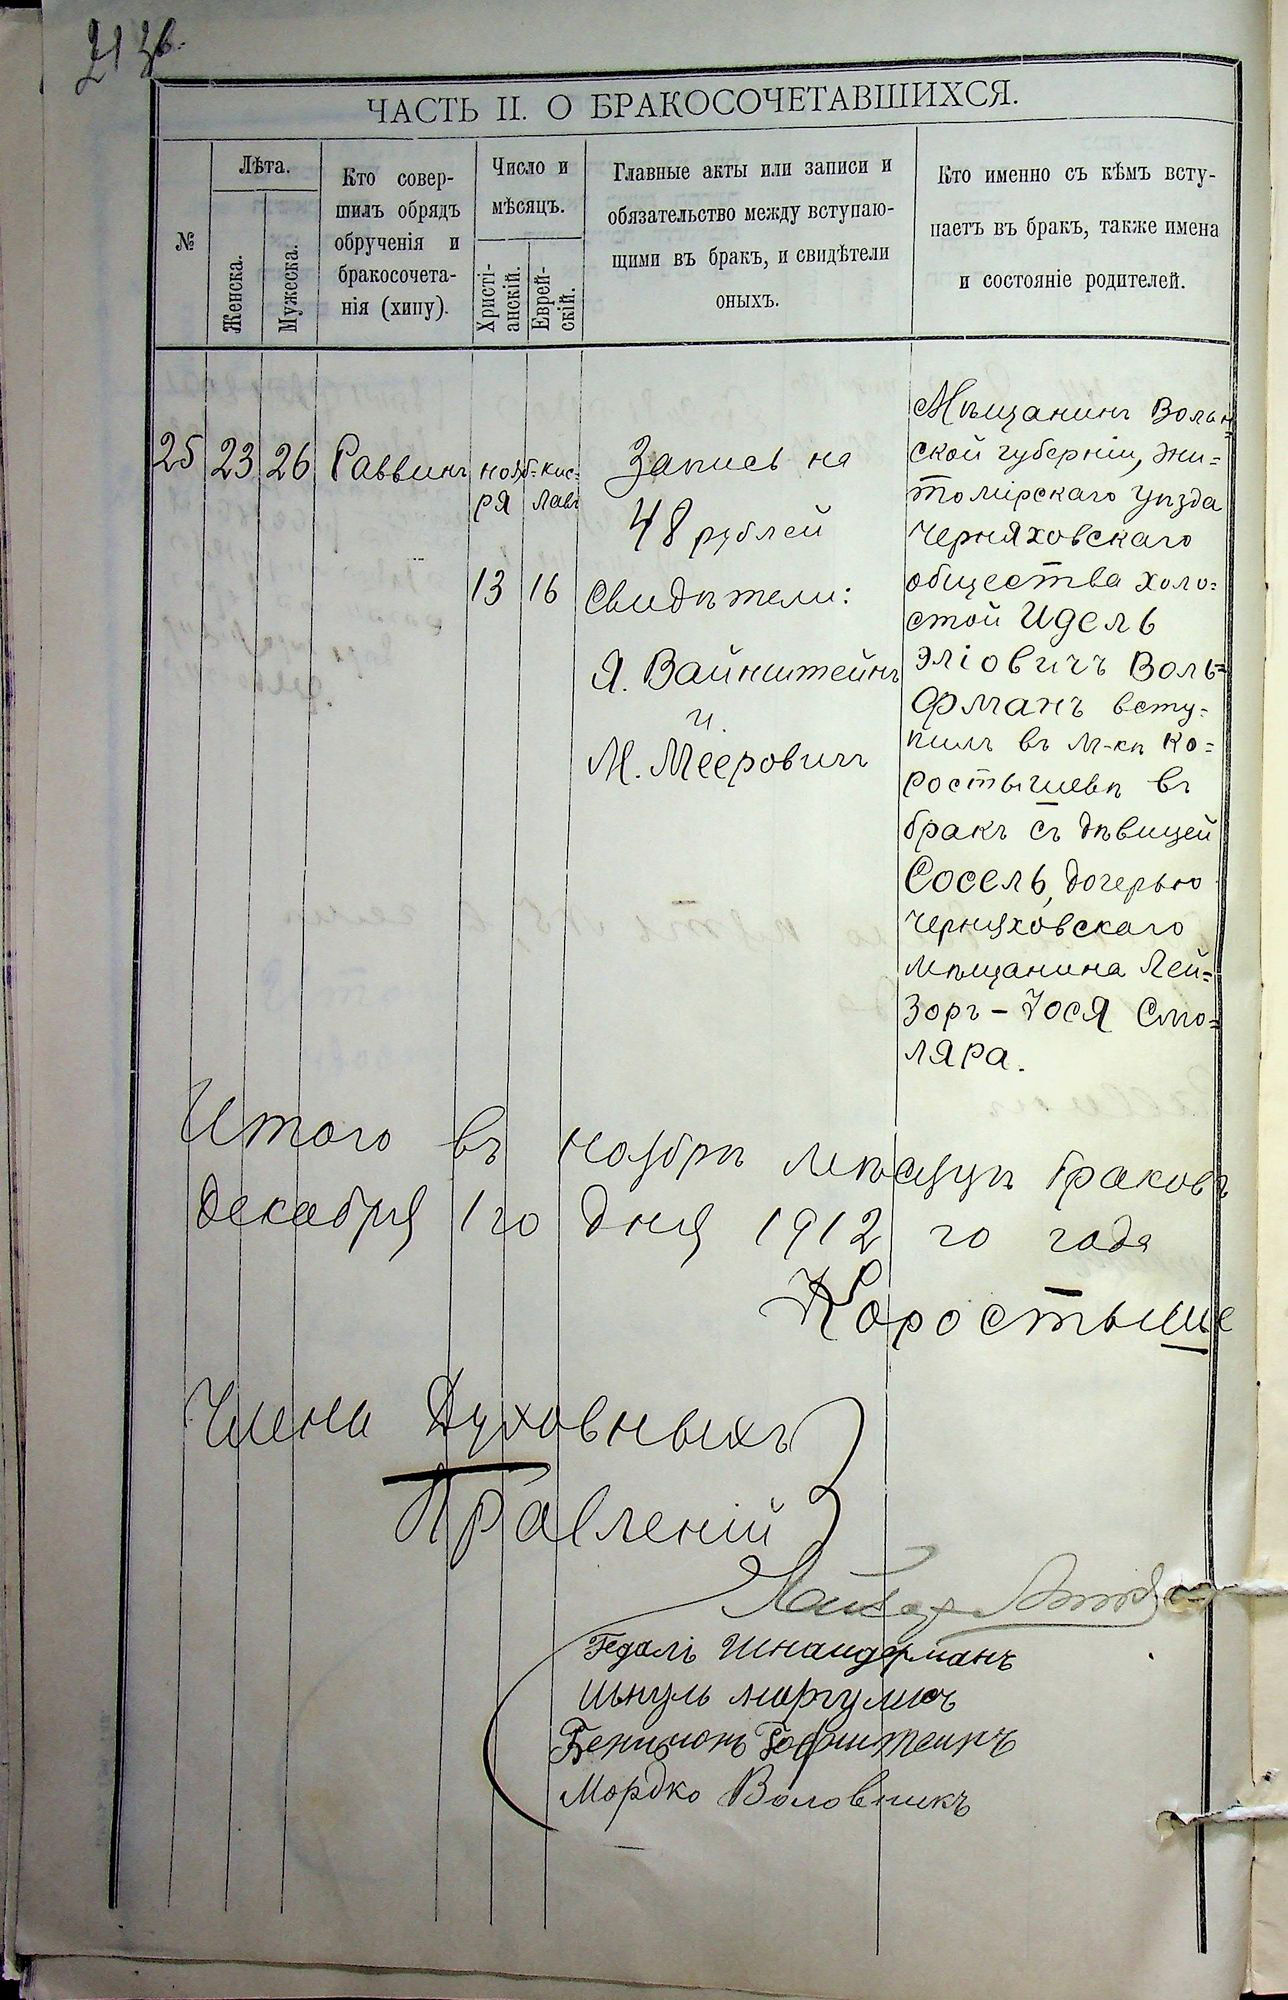 ЧАСТЬ II. О БРАКОСОЧЕТАВШИХСЯ.
№
Лѣта.
Женска.
Мужеска.
Кто совер-
шилъ обрядъ
обрученія и
бракосочета-
нія (хипу).
Число и
мѣсяцъ.
Христі-
анскій.
Еврей-
скій.
Главные акты или записи и
обязательство между вступаю-
щими въ бракъ, и свидѣтели
оныхъ.
Кто именно съ кѣмъ всту-
паетъ въ бракъ, также имена
и состояніе родителей.
25
23
26
Раввинъ
нояб-
ря
13
Кис-
лавъ
16
Запись на
48 рублей
Свидѣтели:
Я. Вайнштейнъ
и
М. Мееровичъ
Мѣщанинъ Волын
ской губерніи, Жи=
томірскаго уѣзда
Черняховскаго
общества холо=
стой Идель
Эліовичъ Воль=
фманъ всту=
пилъ въ м-кѣ Ко=
ростышевѣ въ
бракъ съ дѣвицей
Сосель, дочерью
Черняховскаго
мѣщанина Лей=
зоръ-Іося Смо=
ляра.
Итого въ ноябрѣ мѣсяцѣ браковъ
Декабря 1го дня 1912 го года
Коростыше
Члены Духовныхъ
Правленій
Гедаль Шнайдерманъ
Шмуль Маргулисъ
Мордко Воловникъ